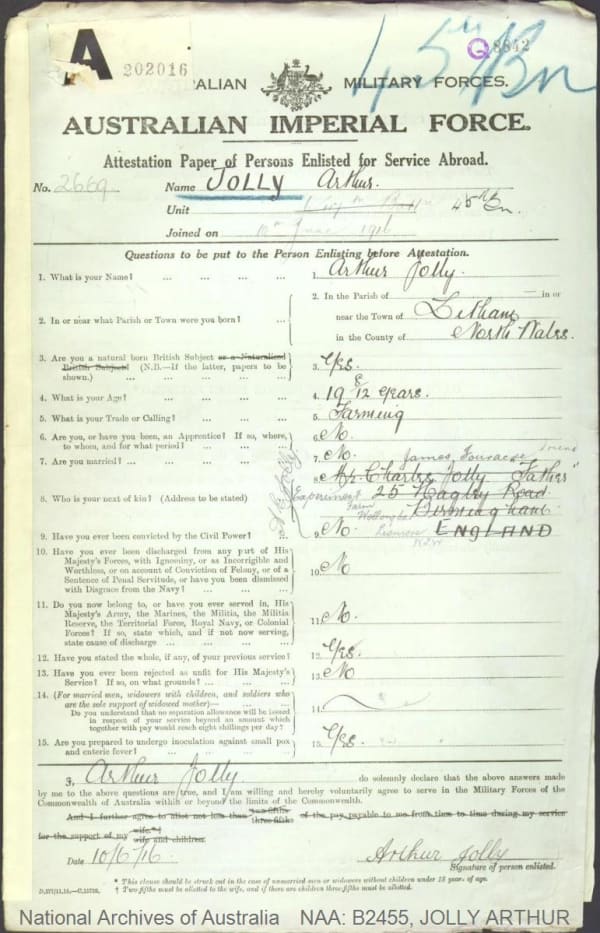 A
202016
45th Bn
Q 8842
AUSTRALIAN MILITARY FORCES.
AUSTRALIAN IMPERIAL FORCE.
Attestation Paper of Persons Enlisted for Service Abroad.
No. 2669 Name JOLLY Arthur.
Unit 45th Bn.
Joined on June 1916
Questions to be put to the Person Enlisting before Attestation.
1. What is your Name? ... ... ... ... 1. Arthur Jolly.
2. In or near what Parish or Town were you born? ... 2. In the Parish of — in or
near the Town of Letham
in the County of North Wales.
3. Are you a natural born British Subject or a Naturalized
British Subject? (N.B.—If the latter, papers to be
shown.) ... ... ... ... ... 3. Yes.
4. What is your Age? ... ... ... ... 4. 19 8/12 years.
5. What is your Trade or Calling? ... ... ... 5. Farming
6. Are you, or have you been, an Apprentice? If so, where,
to whom, and for what period? ... ... ... 6. No.
7. Are you married? ... ... ... ... 7. No.
James friend
8. Who is your next of kin? (Address to be stated) ... 8. Charles Jolly Father
Experiment 25 Hagley Road
Farm
Wollongbar Birmingham
9. Have you ever been convicted by the Civil Power? ... 9. No. ENGLAND
Lismore
NSW
10. Have you ever been discharged from any part of His
Majesty's Forces, with Ignominy, or as Incorrigible and
Worthless, or on account of Conviction of Felony, or of a
Sentence of Penal Servitude, or have you been dismissed
with Disgrace from the Navy? ... ... ... 10. No
11. Do you now belong to, or have you ever served in, His
Majesty's Army, the Marines, the Militia, the Militia
Reserve, the Territorial Force, Royal Navy, or Colonial
Forces? If so, state which, and if not now serving,
state cause of discharge ... ... ... 11. No.
12. Have you stated the whole, if any, of your previous service? 12. Yes.
13. Have you ever been rejected as unfit for His Majesty's
Service? If so, on what grounds? ... ... ... 13. No
14. (For married men, widowers with children, and soldiers who
are the sole support of widowed mother)—
Do you understand that no separation allowance will be issued
in respect of your service beyond an amount which
together with pay would reach eight shillings per day? 14.
15. Are you prepared to undergo inoculation against small pox
and enteric fever? ... ... ... ... 15. Yes.
I, Arthur Jolly. do solemnly declare that the above answers made
by me to the above questions are true, and I am willing and hereby voluntarily agree to serve in the Military Forces of the
Commonwealth of Australia within or beyond the limits of the Commonwealth.
And I further agree to allot not less than two-fifths three-fifths of the pay payable to me from time to time during my service
for the support of my wife.* wife and children.
Date 10/6/16. Arthur Jolly
Signature of person enlisted.
* This clause should be struck out in the case of unmarried men or widowers without children under 18 years of age.
† Two-fifths must be allotted to the wife, and if there are children three-fifths must be allotted.
National Archives of Australia NAA: B2455, JOLLY ARTHUR